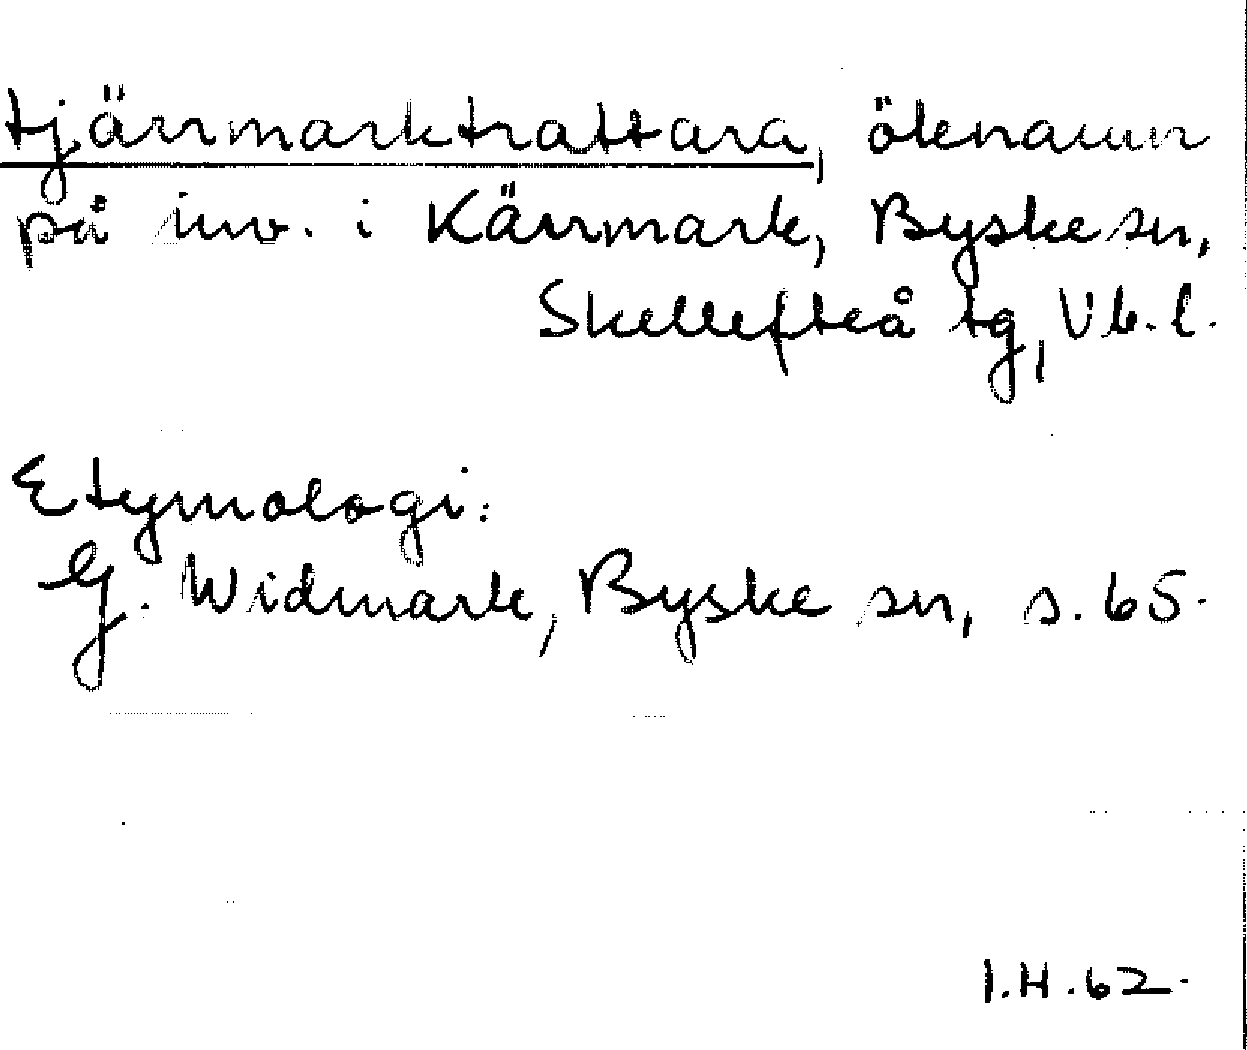 tjärrmarktrattara, öknamn
på inv. i Kärrmark, Byske sn,
Skellefteå tg, Vb. l.
Etymologi:
G. Widmark, Byske sn, s. 65.
I.H. 62.